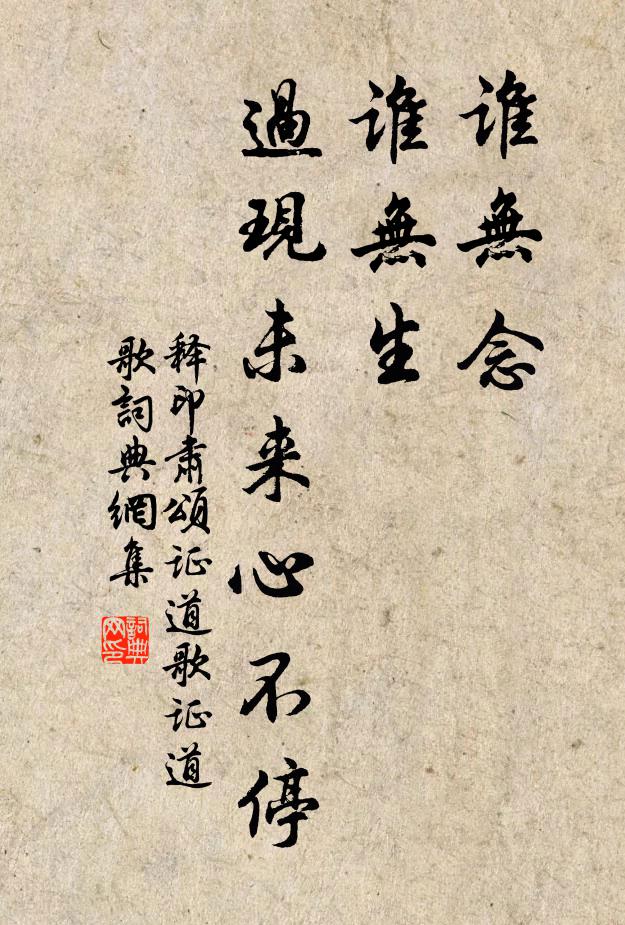 誰無念
誰無生
過現未来心不停
释印肅頌证道歌证道
歌詞典網集
詞典网印